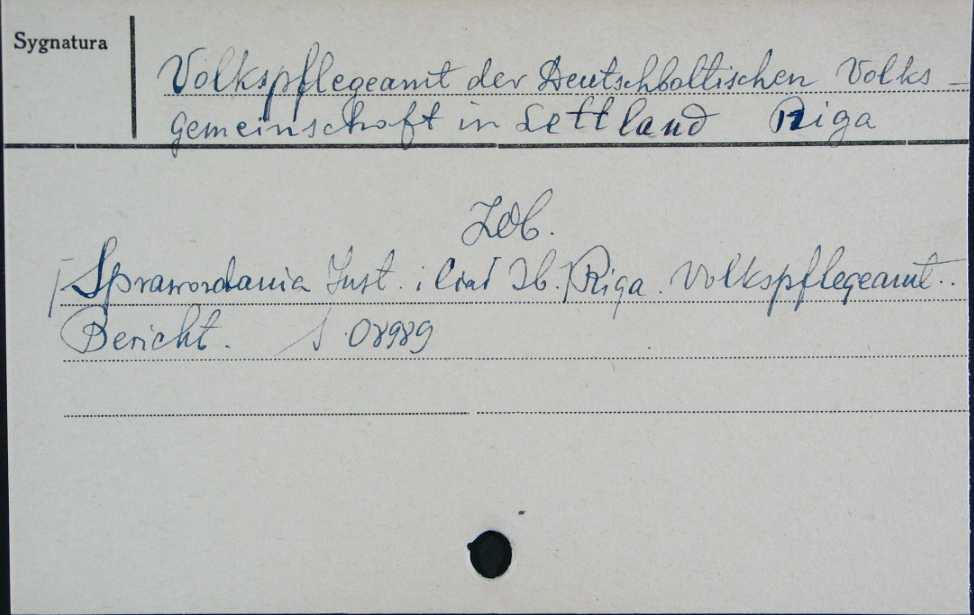 Sygnatura
Volkspflegeamt der Deutschbaltischen Volks-
gemeinschaft in Lettland Riga
Zob.
[Sprawozdania Inst. i Ciał Zb.] Riga. Volkspflegeamt..
Bericht. S 08989